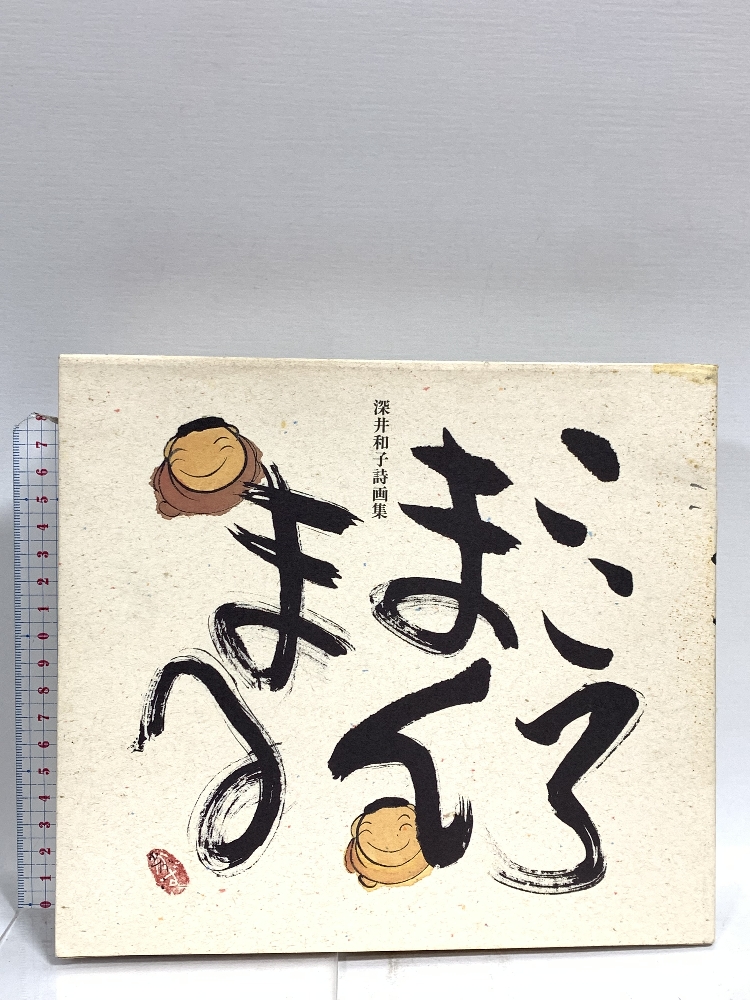 こころ
まん
深井和子詩画集
まる
0 1 2 3 4 5 6 7 8 9 0 1 2 3 4 5 6 7 8